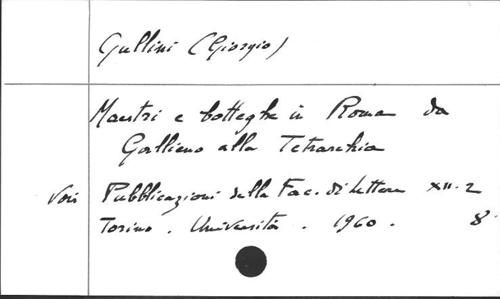 Gullini (Giorgio)
Maestri e botteghe in Roma da
Gallieno alla Tetrarchia
Voir Pubblicazioni della Fac. di Lettere XII. 2
Torino. Università. 1960. 8°